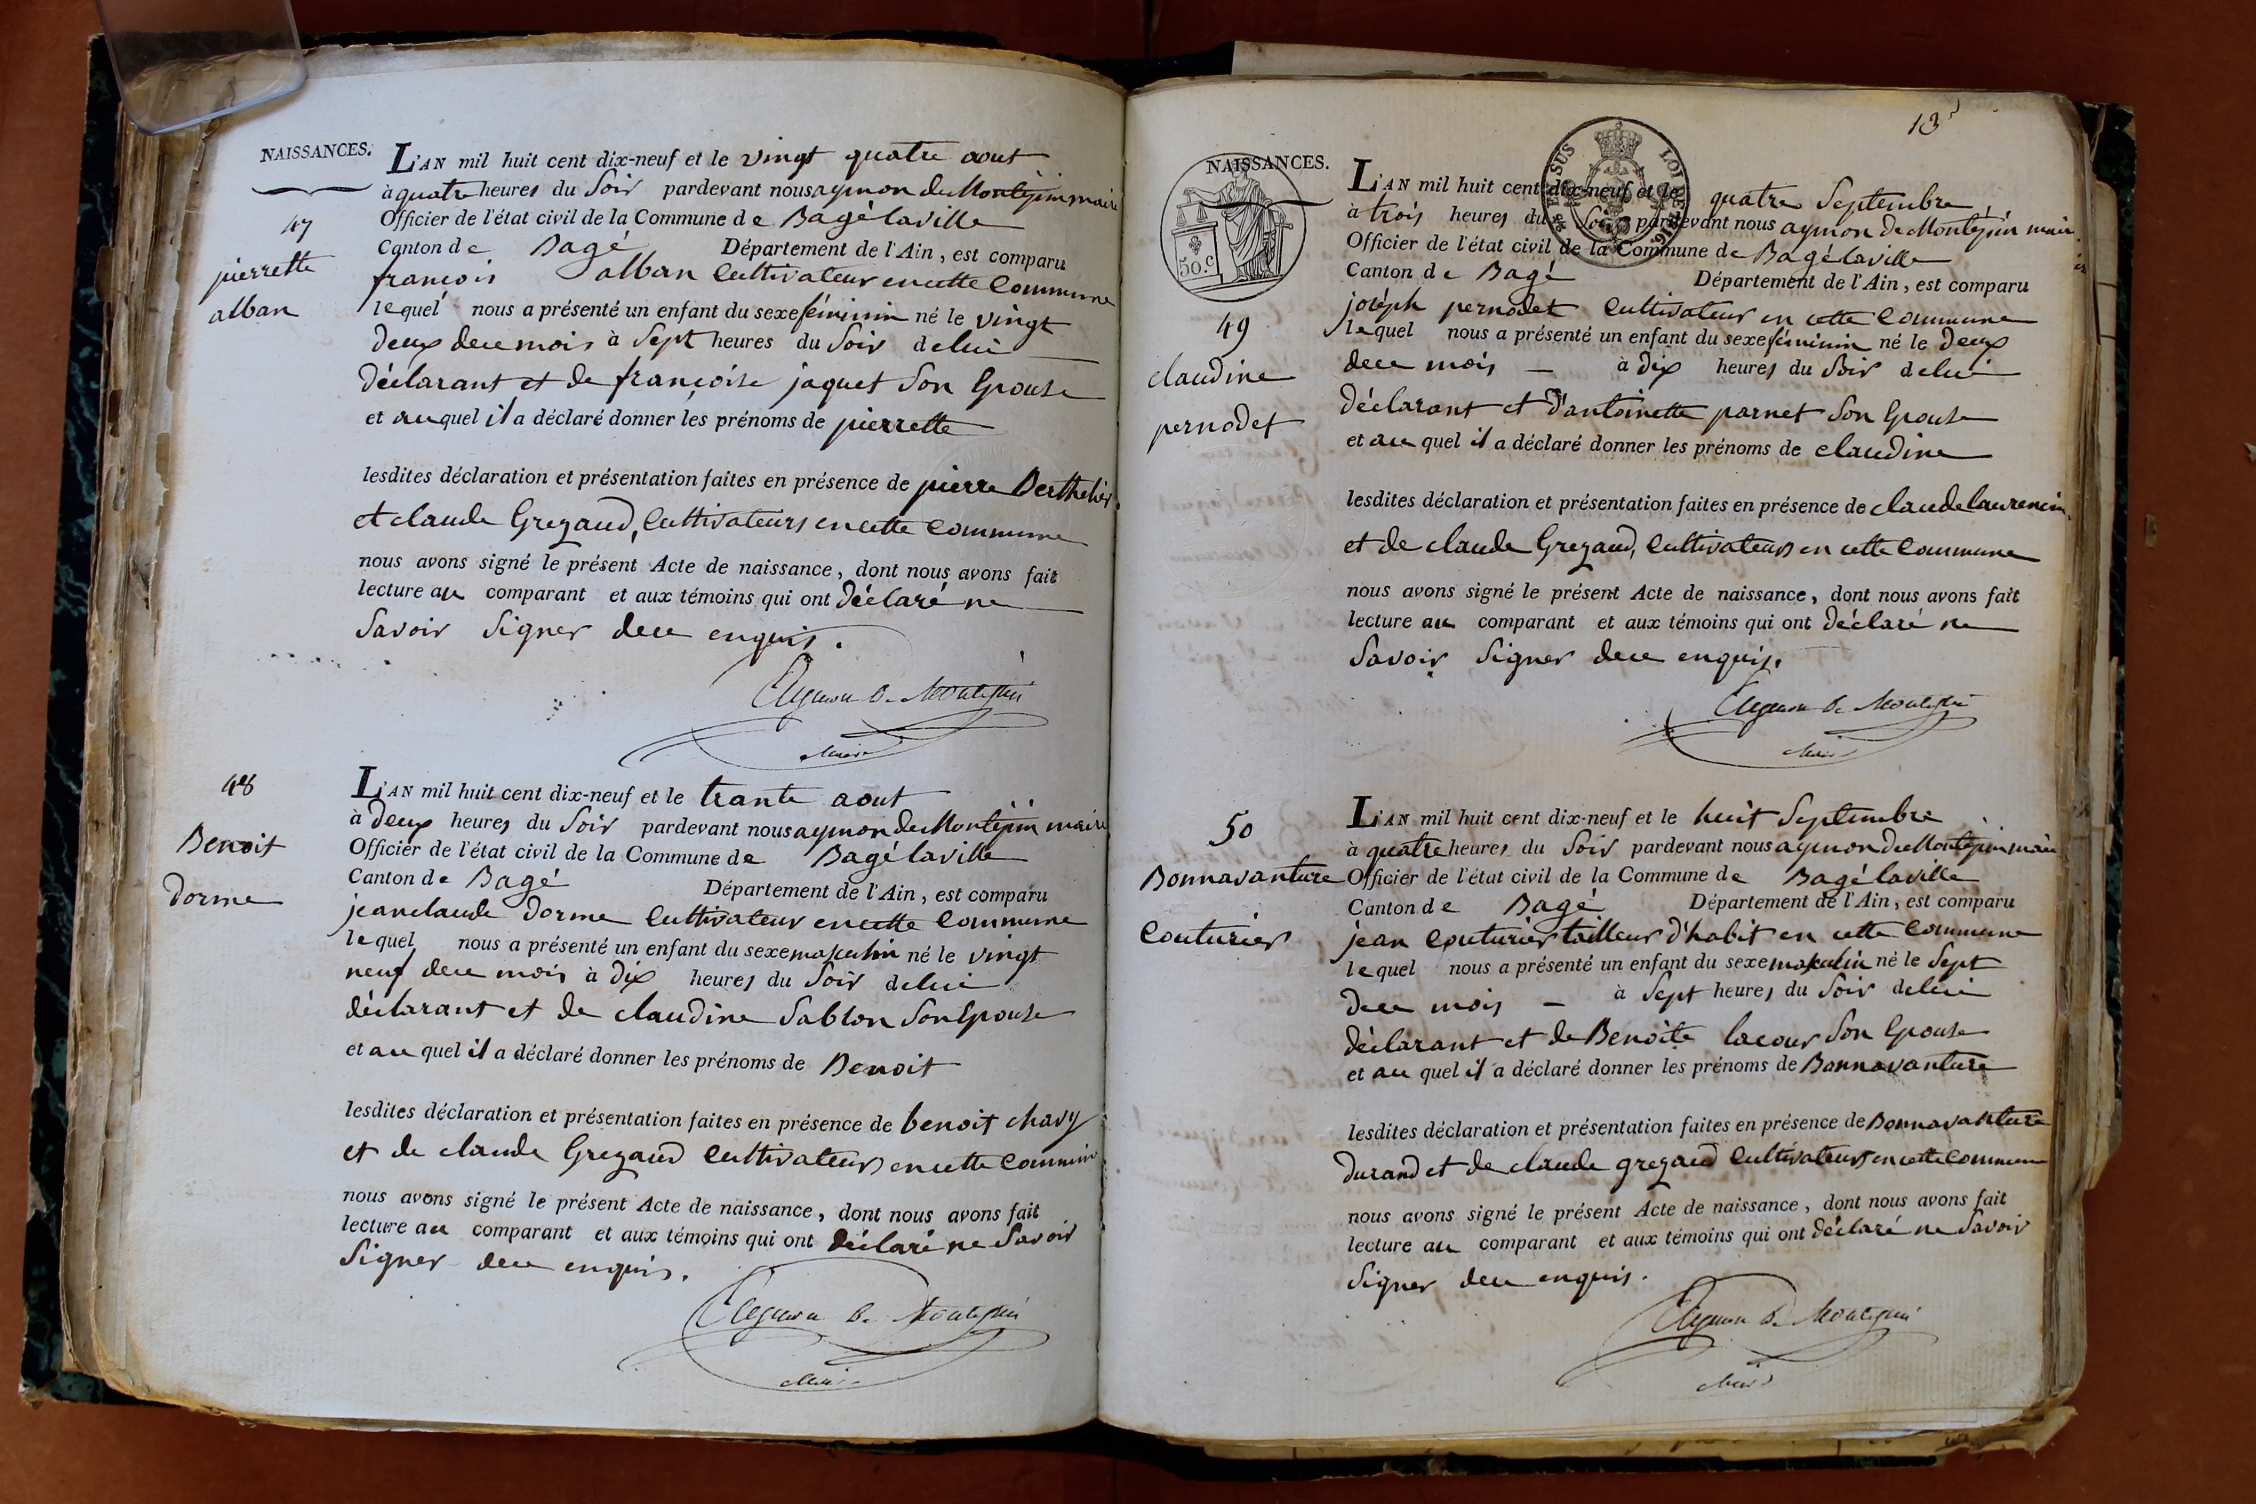 NAISSANCES.
47
pierrette
alban
L'AN mil huit cent dix-neuf et le vingt quatre aout
à quatre heures du Soir pardevant nous aymon de Montépin maire
Officier de l'état civil de la Commune de Bagé laville
Canton de Bagé Département de l'Ain, est comparu
françois alban Cultivateur en cette Commune
lequel nous a présenté un enfant du sexe féminin né le vingt
deux dece mois à Sept heures du Soir de lui
déclarant et de françoise jaquet Son Epouse
et auquel il a déclaré donner les prénoms de pierrette
lesdites déclaration et présentation faites en présence de pierre Berthelier
et claude Gregaud, Cultivateurs en cette Commune
nous avons signé le présent Acte de naissance, dont nous avons fait
lecture au comparant et aux témoins qui ont déclaré ne
Savoir Signer dece enquis.
Aymon de Montépin
Maire
48
Benoit
dorme
L'AN mil huit cent dix-neuf et le trante aout
à deux heures du Soir pardevant nous aymon de Montépin maire
Officier de l'état civil de la Commune de Bagé laville
Canton de Bagé Département de l'Ain, est comparu
jean claude dorme Cultivateur en cette Commune
lequel nous a présenté un enfant du sexe masculin né le vingt
neuf dece mois à dix heures du Soir de lui
déclarant et de claudine Sablon Son Epouse
et au quel il a déclaré donner les prénoms de Benoit
lesdites déclaration et présentation faites en présence de benoit chavy
et de claude Gregaud Cultivateurs en cette Commune
nous avons signé le présent Acte de naissance, dont nous avons fait
lecture au comparant et aux témoins qui ont déclaré ne Savoir
Signer dece enquis.
Aymon de Montépin
Maire
13
NAISSANCES.
50.c
LOUIS
49
claudine
pernodet
L'AN mil huit cent dix-neuf et le quatre Septembre
à trois heures du Soir pardevant nous aymon de Montépin maire
Officier de l'état civil de la Commune de Bagé laville
Canton de Bagé Département de l'Ain, est comparu
joseph pernodet Cultivateur en cette Commune
lequel nous a présenté un enfant du sexe féminin né le deux
dece mois à dix heures du Soir de lui
déclarant et d'antoinette parnet Son Epouse
et au quel il a déclaré donner les prénoms de claudine
lesdites déclaration et présentation faites en présence de claude laurencin
et de claude Gregaud, Cultivateurs en cette Commune
nous avons signé le présent Acte de naissance, dont nous avons fait
lecture au comparant et aux témoins qui ont déclaré ne
Savoir Signer dece enquis.
Aymon de Montépin
Maire
50
Bonnavanture
Couturier
L'AN mil huit cent dix-neuf et le huit Septembre
à quatre heures du Soir pardevant nous aymon de Montépin maire
Officier de l'état civil de la Commune de Bagé laville
Canton de Bagé Département de l'Ain, est comparu
jean Couturier tailleur d'habit en cette Commune
lequel nous a présenté un enfant du sexe masculin né le Sept
dece mois à Sept heures du Soir de lui
déclarant et de Benoite lacour Son Epouse
et au quel il a déclaré donner les prénoms de Bonnavanture
lesdites déclaration et présentation faites en présence de Bonnavanture
durand et de claude gregaud Cultivateurs en cette Commune
nous avons signé le présent Acte de naissance, dont nous avons fait
lecture au comparant et aux témoins qui ont déclaré ne Savoir
Signer dece enquis.
Aymon de Montépin
Maire